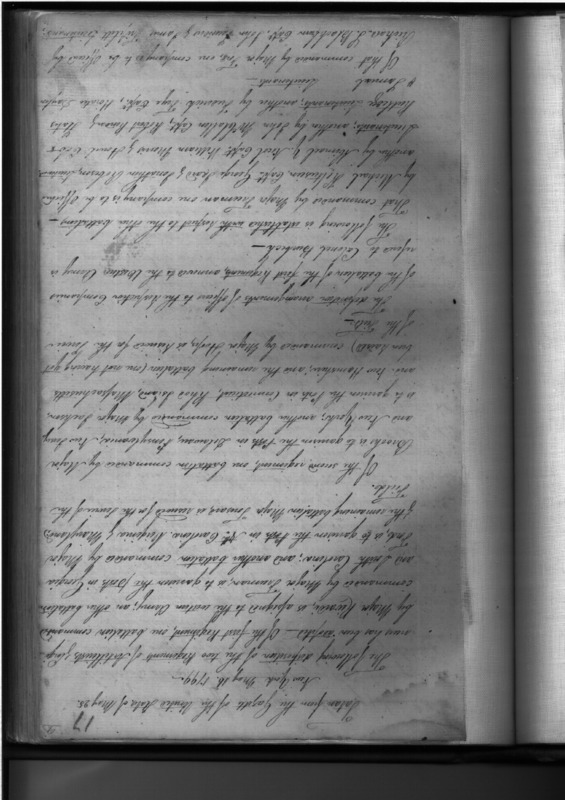 17
Taken from the Gazette of the United States of May 23.
New York May 18. 1799.
The following disposition of the two Regiments of Artillerists & Engi-
neers has been adopted — Of the first Regiment, one battalion commanded
by Major Rivardi, is assigned to the western Army; an other battalion
commanded by Major Freeman, is to garrison the posts in Georgia
and South Carolina, and another battalion commanded by Major
Ford, is to garrison the Posts in N. Carolina, Virginia & Maryland
& the remaining battalion Major Tousard, is reserved for the service of the
Field.
Of the second regiment, one battalion commanded by Major
Brooks is to garrison the Posts in Delaware, Pennsylvania, New Jersey
and New York; another battalion commanded by Major Jackson
is to garrison the Posts in Connecticut, Rhode Island, Massachusetts
and New Hampshire, and the remaining battalion (one not having yet
been raised) commanded by Major Hoops, is reserved for the service
of the Field—
The definitive arrangements of Officers to the respective Companies
of the battalion of the first Regiment, annexed to the Western Army is
referred to Colonel Burbeck—
The following is established with respect to the other battalions—
That commanded by Major Freeman one company is to be Officered
by Michael Kalteisen, Capt. George Izard & Jonathan Robeson,
another by Capt. William Morris &
Lieutenants; another by John McClallen Capt, Robert Rowan,
Rutledge Lieutenants, another by Frederick Frye Capt, Horatio
& Samuel Lieutenants—
Of that commanded by Major Ford, one company is to be officered by
Richard S. Blackburn Capt. John Leuvins & James Triplett Lieutenants.